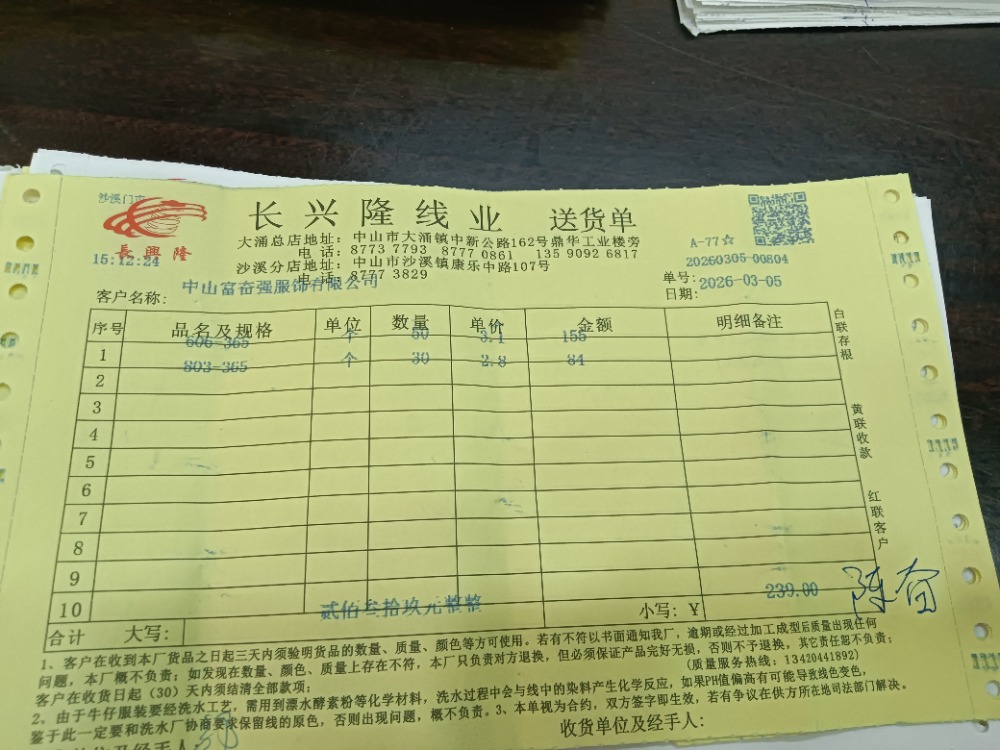 沙溪门市
長興隆
15:12:24
长兴隆线业 送货单
大涌总店地址：中山市大涌镇中新公路162号鼎华工业楼旁
电话：8773 7793 8777 0861 135 9092 6817
沙溪分店地址：中山市沙溪镇康乐中路107号
电话：8777 3829
A-77☆
单号：20260305-00804
日期：2026-03-05
客户名称：中山富奋强服饰有限公司
序号 品名及规格 单位 数量 单价 金额 明细备注
1 606-365 个 50 3.1 155
2 803-365 个 30 2.8 84
3
4
5
6
7
8
9
10
合计 大写：贰佰叁拾玖元整整 小写：¥ 239.00
白联存根
黄联收款
红联客户
陈奋
1、客户在收到本厂货品之日起三天内须验明货品的数量、质量、颜色等方可使用。若有不符以书面通知我厂，逾期或经过加工成型后质量出现任何
问题，本厂概不负责；如发现在数量、颜色、质量上存在不符，本厂只负责对方退换，但必须保证产品完好无损，否则不予退换，其它责任恕不负责；
客户在收货日起（30）天内须结清全部款项； （质量服务热线：13420441892）
2、由于牛仔服装要经洗水工艺，需用到漂水酵素粉等化学材料，洗水过程中会与线中的染料产生化学反应，如果PH值偏高有可能导致线色变色，
鉴于此一定要和洗水厂协商要求保留线的原色，否则出现问题，概不负责。3、本单视为合约，双方签字即生效，若有争议在供方所在地司法部门解决。
单位及经手人：
收货单位及经手人：